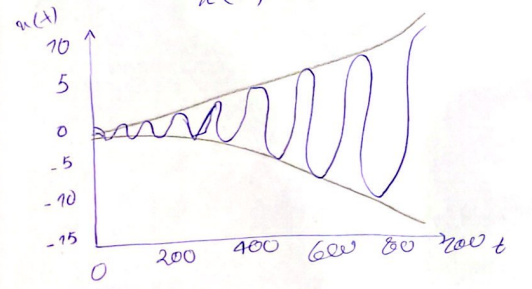 n(t)
10
5
0
-5
-10
-15
0 200 400 600 80 200 t